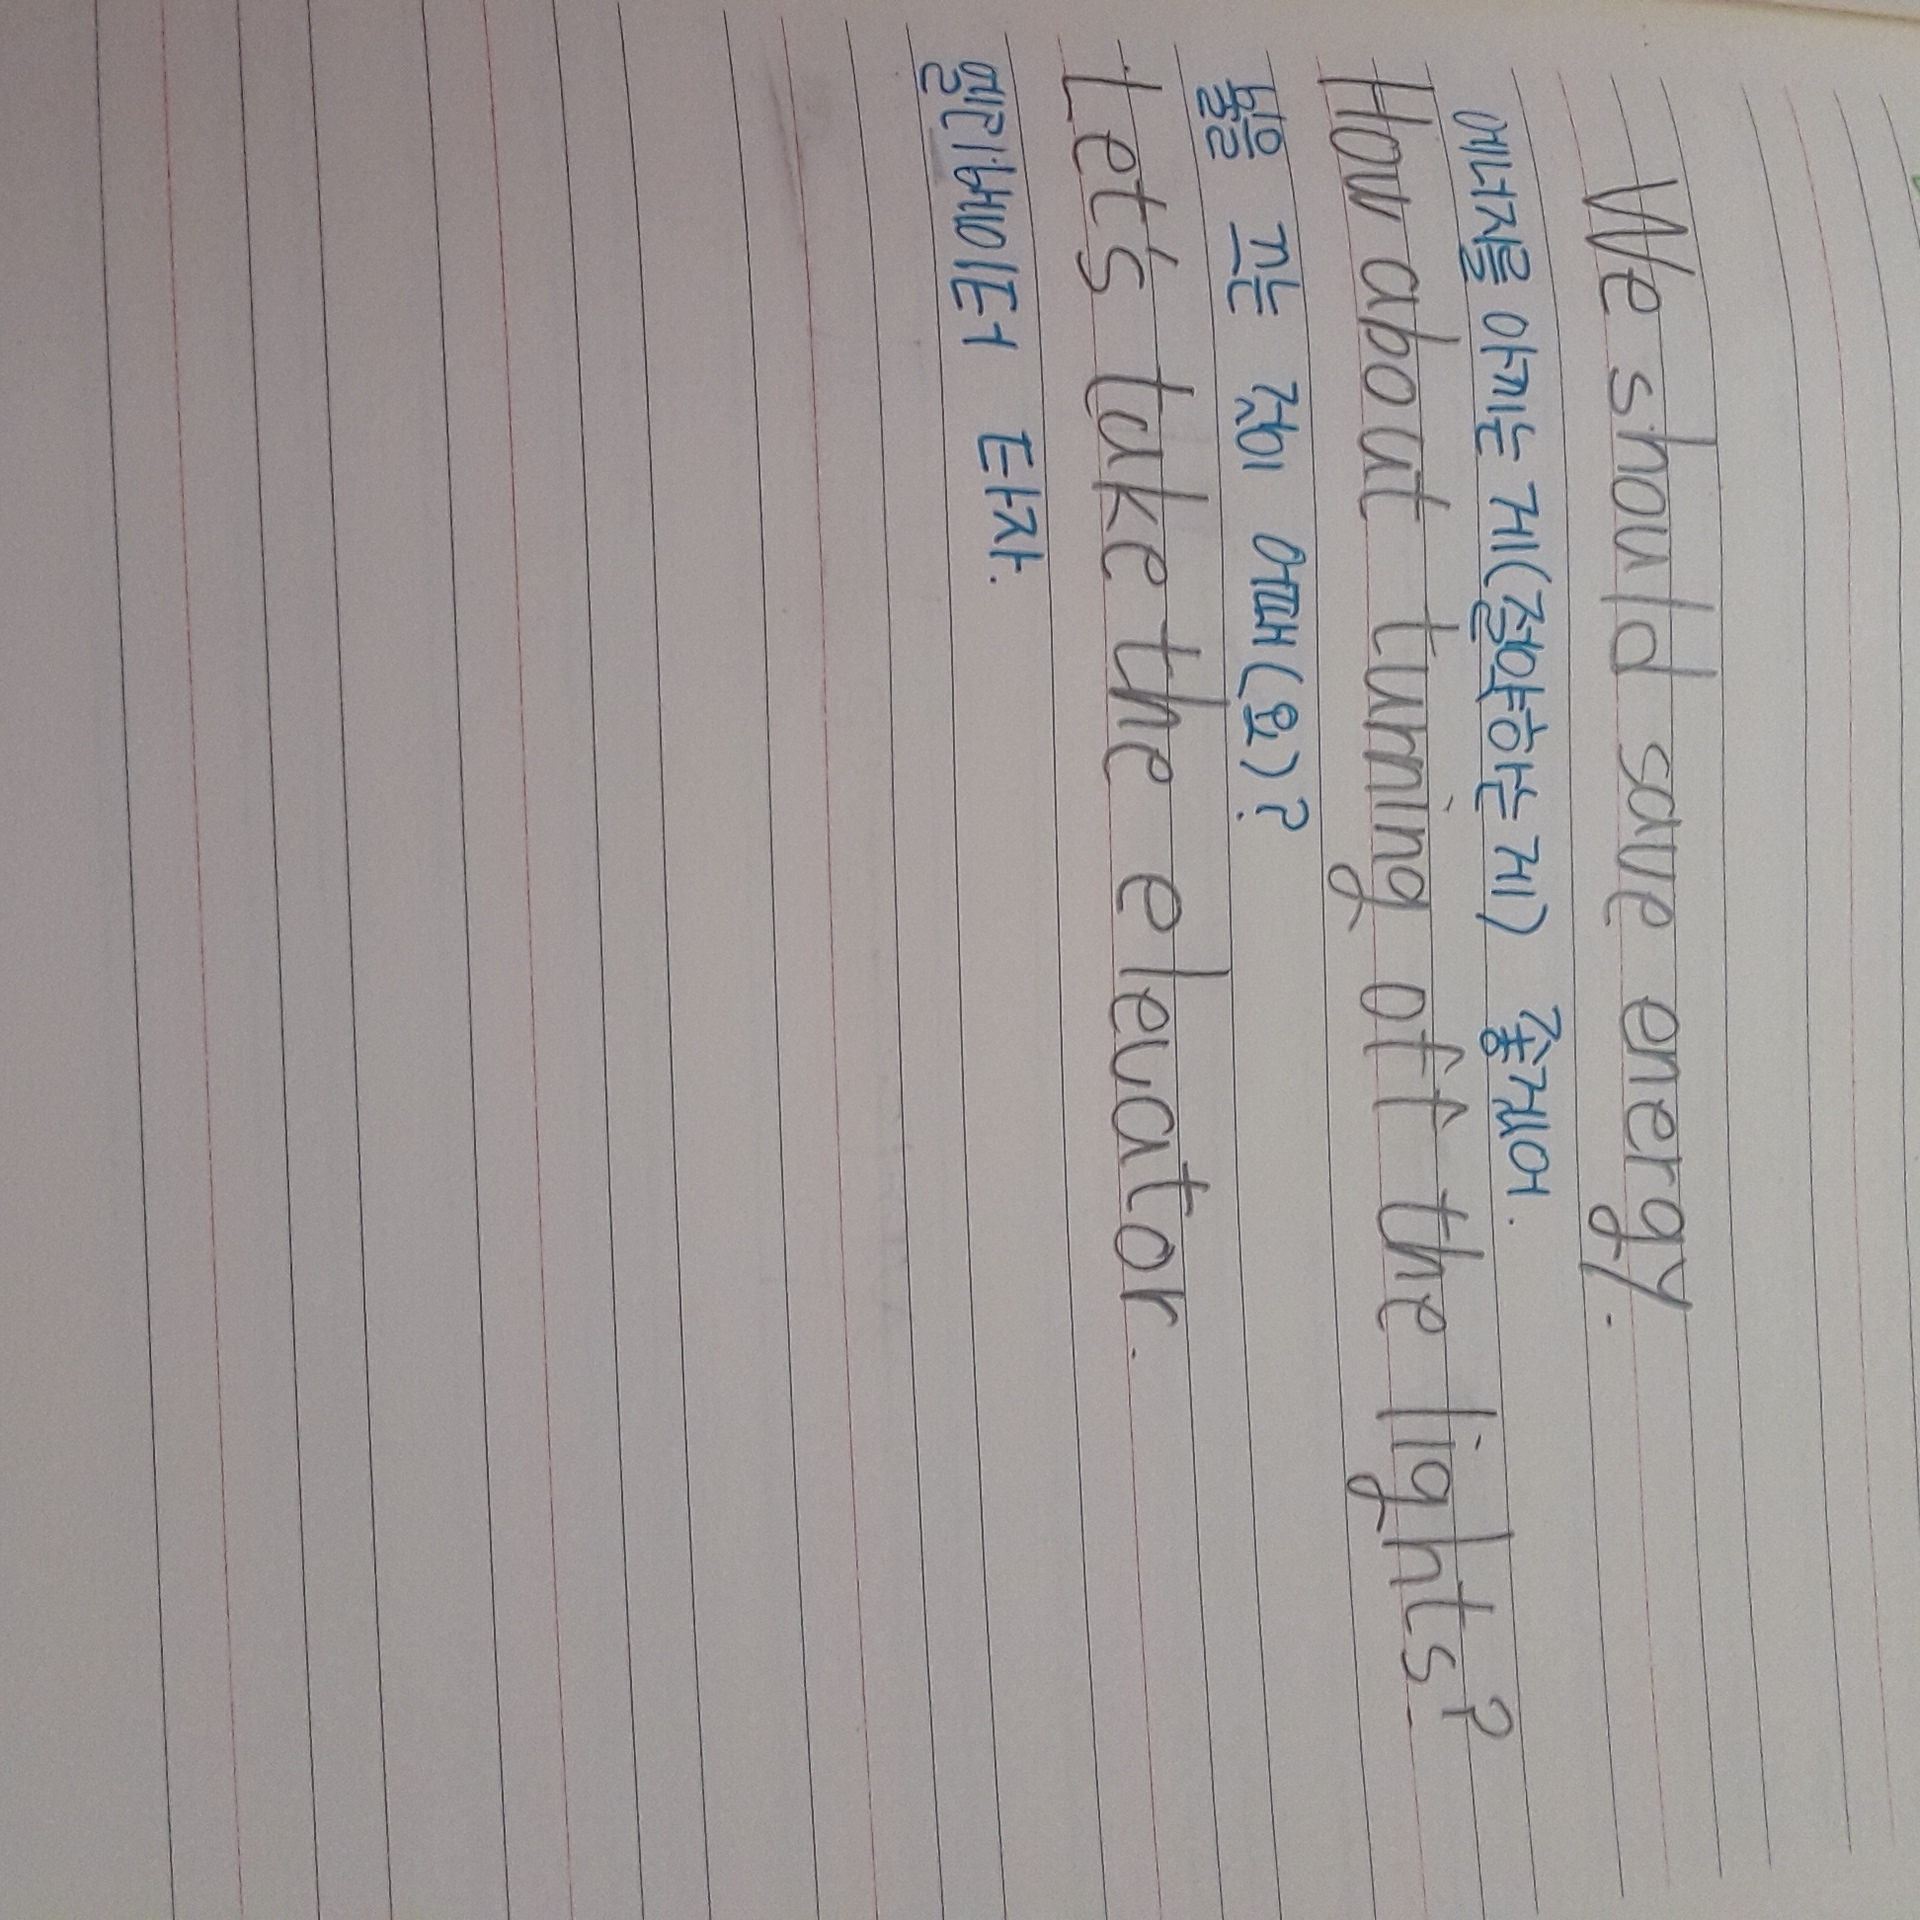 We should save energy.
에너지를 아끼는 게(절약하는 게) 좋겠어.
How about turning off the lights?
불을 끄는 것이 어때(요)?
Let's take the elevator.
엘리베이터 타자.